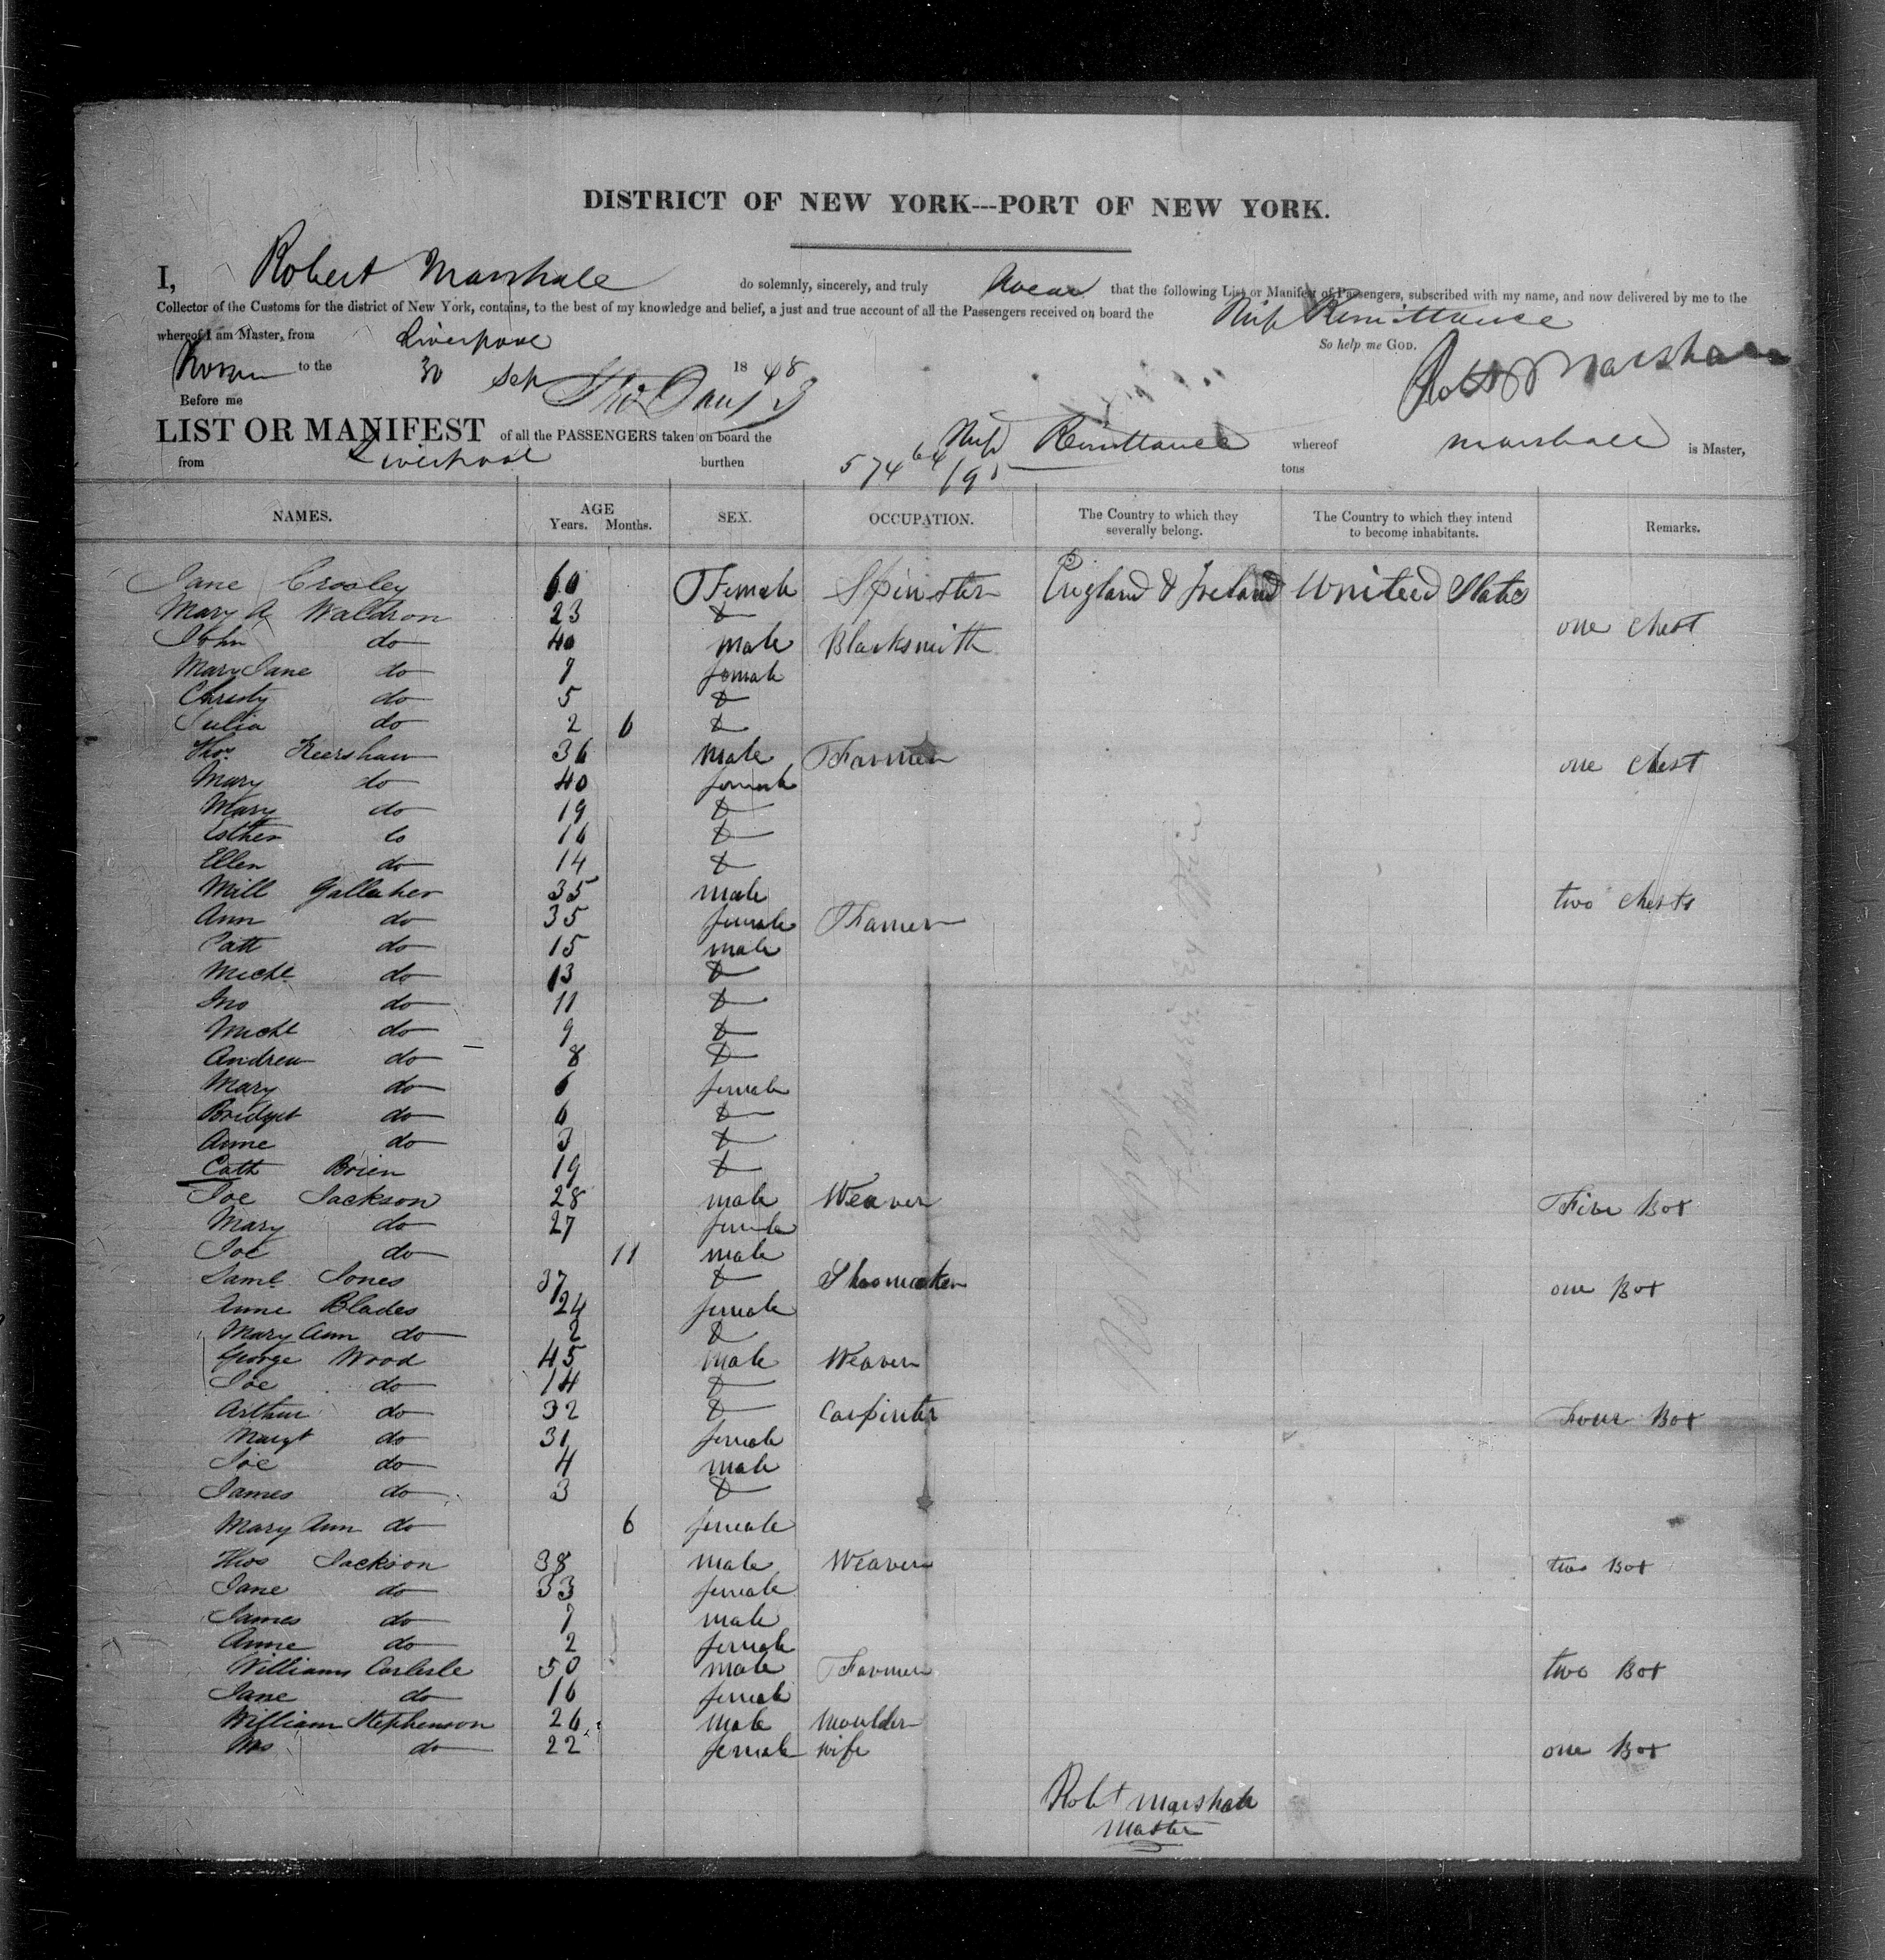 DISTRICT OF NEW YORK---PORT OF NEW YORK.
I, Robert Marshall do solemnly, sincerely, and truly swear that the following List or Manifest of Passengers, subscribed with my name, and now delivered by me to the
Collector of the Customs for the district of New York, contains, to the best of my knowledge and belief, a just and true account of all the Passengers received on board the Ship Remittance
whereof I am Master, from Liverpool
So help me GOD.
Sworn to the 30 Sep 1848 Robt Marshall
Before me
LIST OR MANIFEST of all the PASSENGERS taken on board the Ship Remittance whereof Marshall is Master,
from Liverpool burthen 574 64/95 tons
NAMES. AGE Years. Months. SEX. OCCUPATION. The Country to which they severally belong. The Country to which they intend to become inhabitants. Remarks.
Jane Crosley 60 Female Spinster England & Ireland United States
Mary A Waldron 23 do one chest
John do 40 male Blacksmith
Mary Jane do 7 female
Christy do 5 do
Julia do 2 6 do
Thos Keershaw 36 male Farmer one chest
Mary do 40 female
Mary do 19 do
Esther do 16 do
Ellen do 14 do
Mill Gallaher 35 male two chests
Ann do 35 female Farmer
Patt do 15 male
Michl do 13 do
Jno do 11 do
Michl do 9 do
Andrew do 8 do
Mary do 6 female
Bridget do 6 do
Anne do 3 do
Cath Brien 19 do
Joe Jackson 28 male Weaver Five Box
Mary do 27 female
Joe do 11 male
Saml Jones 37 do Shoemaker one Box
Anne Blades 24 female
Mary Ann do 2 do
George Wood 45 male Weaver
Joe do 14 do
Arthur do 32 do Carpinter Four Box
Margt do 31 female
Joe do 4 male
James do 3 do
Mary Ann do 6 female
Thos Jackson 38 male Weaver two Box
Jane do 33 female
James do 7 male
Anne do 2 female
Williams Carlisle 50 male Farmer two Box
Jane do 16 female
William Stephenson 26 male Moulder
Mrs do 22 female wife one Box
Robt Marshall
Master